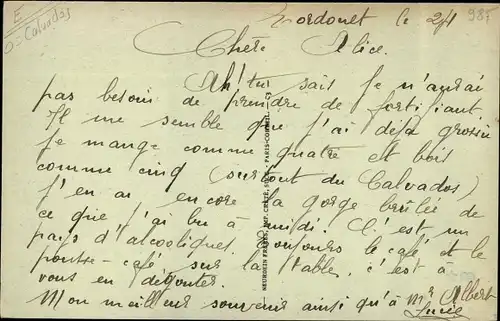 E
O = Calvados
987
le 2/4
Chère Alice.
Ah! tu sais je n'aurai
pas besoin de prendre de fortifiant
Il me semble que j'ai déjà grossi
je mange comme quatre et bois
comme cinq (surtout du Calvados)
j'en ai encore la gorge brûlée de
ce que j'ai bu à midi. C'est un
pays d'alcooliques. Toujours le café et le
pousse-café sur la table, c'est à
vous en dégouter.
Mon meilleur souvenir ainsi qu'à Mr Albert
Lucie
NEURDEIN FRÈRES, IMP. CRÉTÉ, SUCC., PARIS-CORBEIL